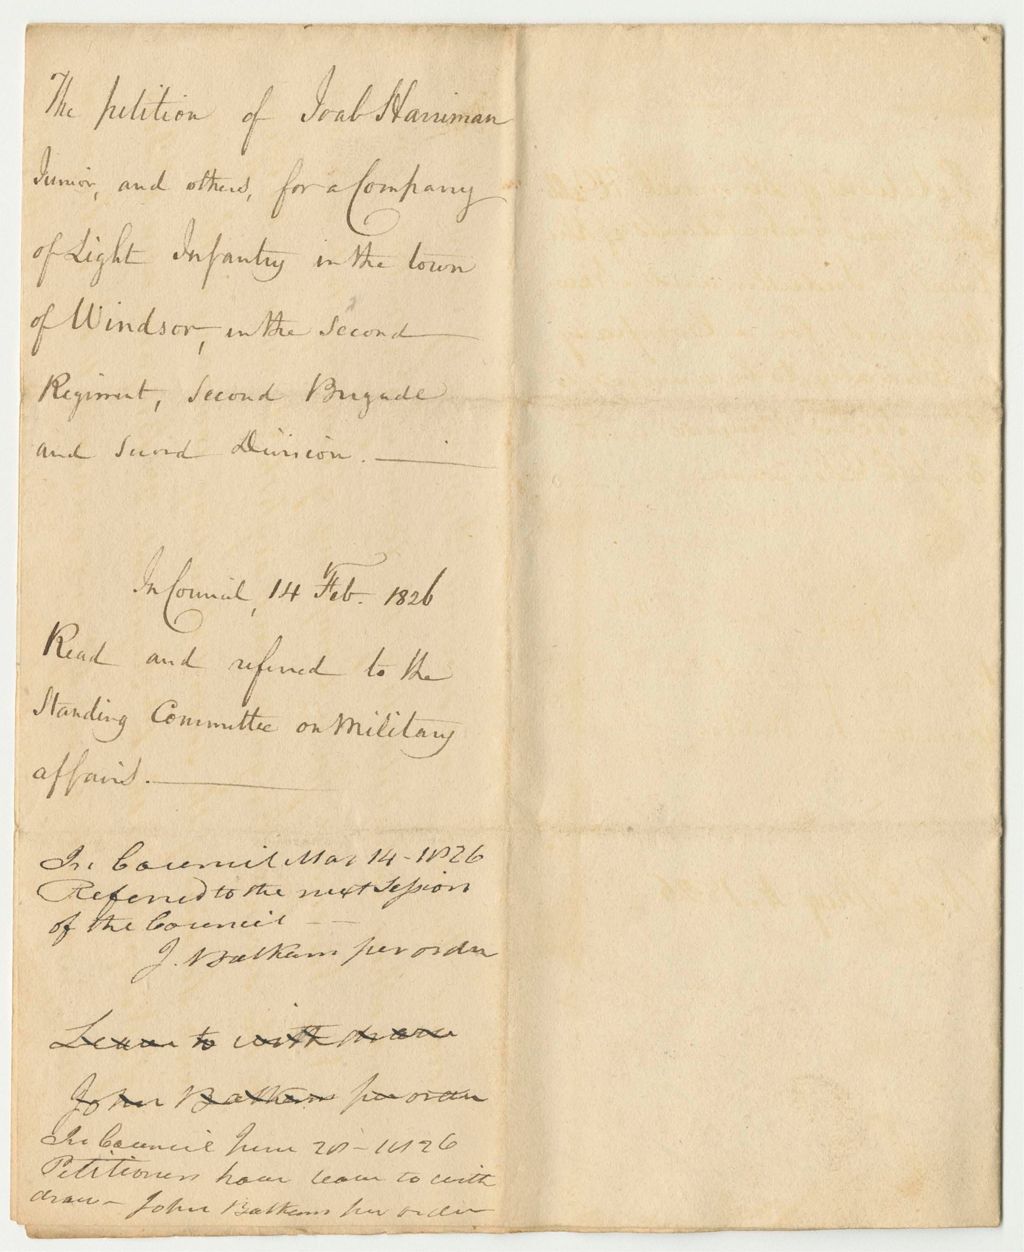 The petition of Joab Harriman
Junior, and others, for a Company
of Light Infantry in the town
of Windsor, in the Second
Regiment, Second Brigade
and Second Division.
In Council, 14 Feb. 1826
Read and referred to the
Standing Committee on Military
affairs.
In Council Mar 14 - 1826
Referred to the next Session
of the Council
J. Balkam per order
Leave to withdraw
John Balkam per order
In Council June 28 - 1826
Petitioners have leave to with
draw - John Balkam per order